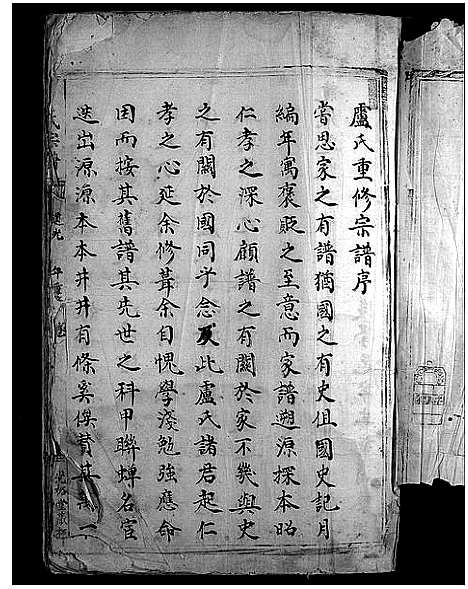 盧氏重修宗譜序
嘗思家之有譜猶國之有史但國史記月
編年寓褒貶之至意而家譜遡源探本昭
仁孝之深心顧譜之有關於家不幾與史
之有關於國同乎念及此盧氏諸君起仁
孝之心延余修葺余自愧學淺勉強應命
因而接其舊譜其先世之科甲聯蟬名宦
迭出源源本本井井有條奚俟贅其
氏宗譜 道光